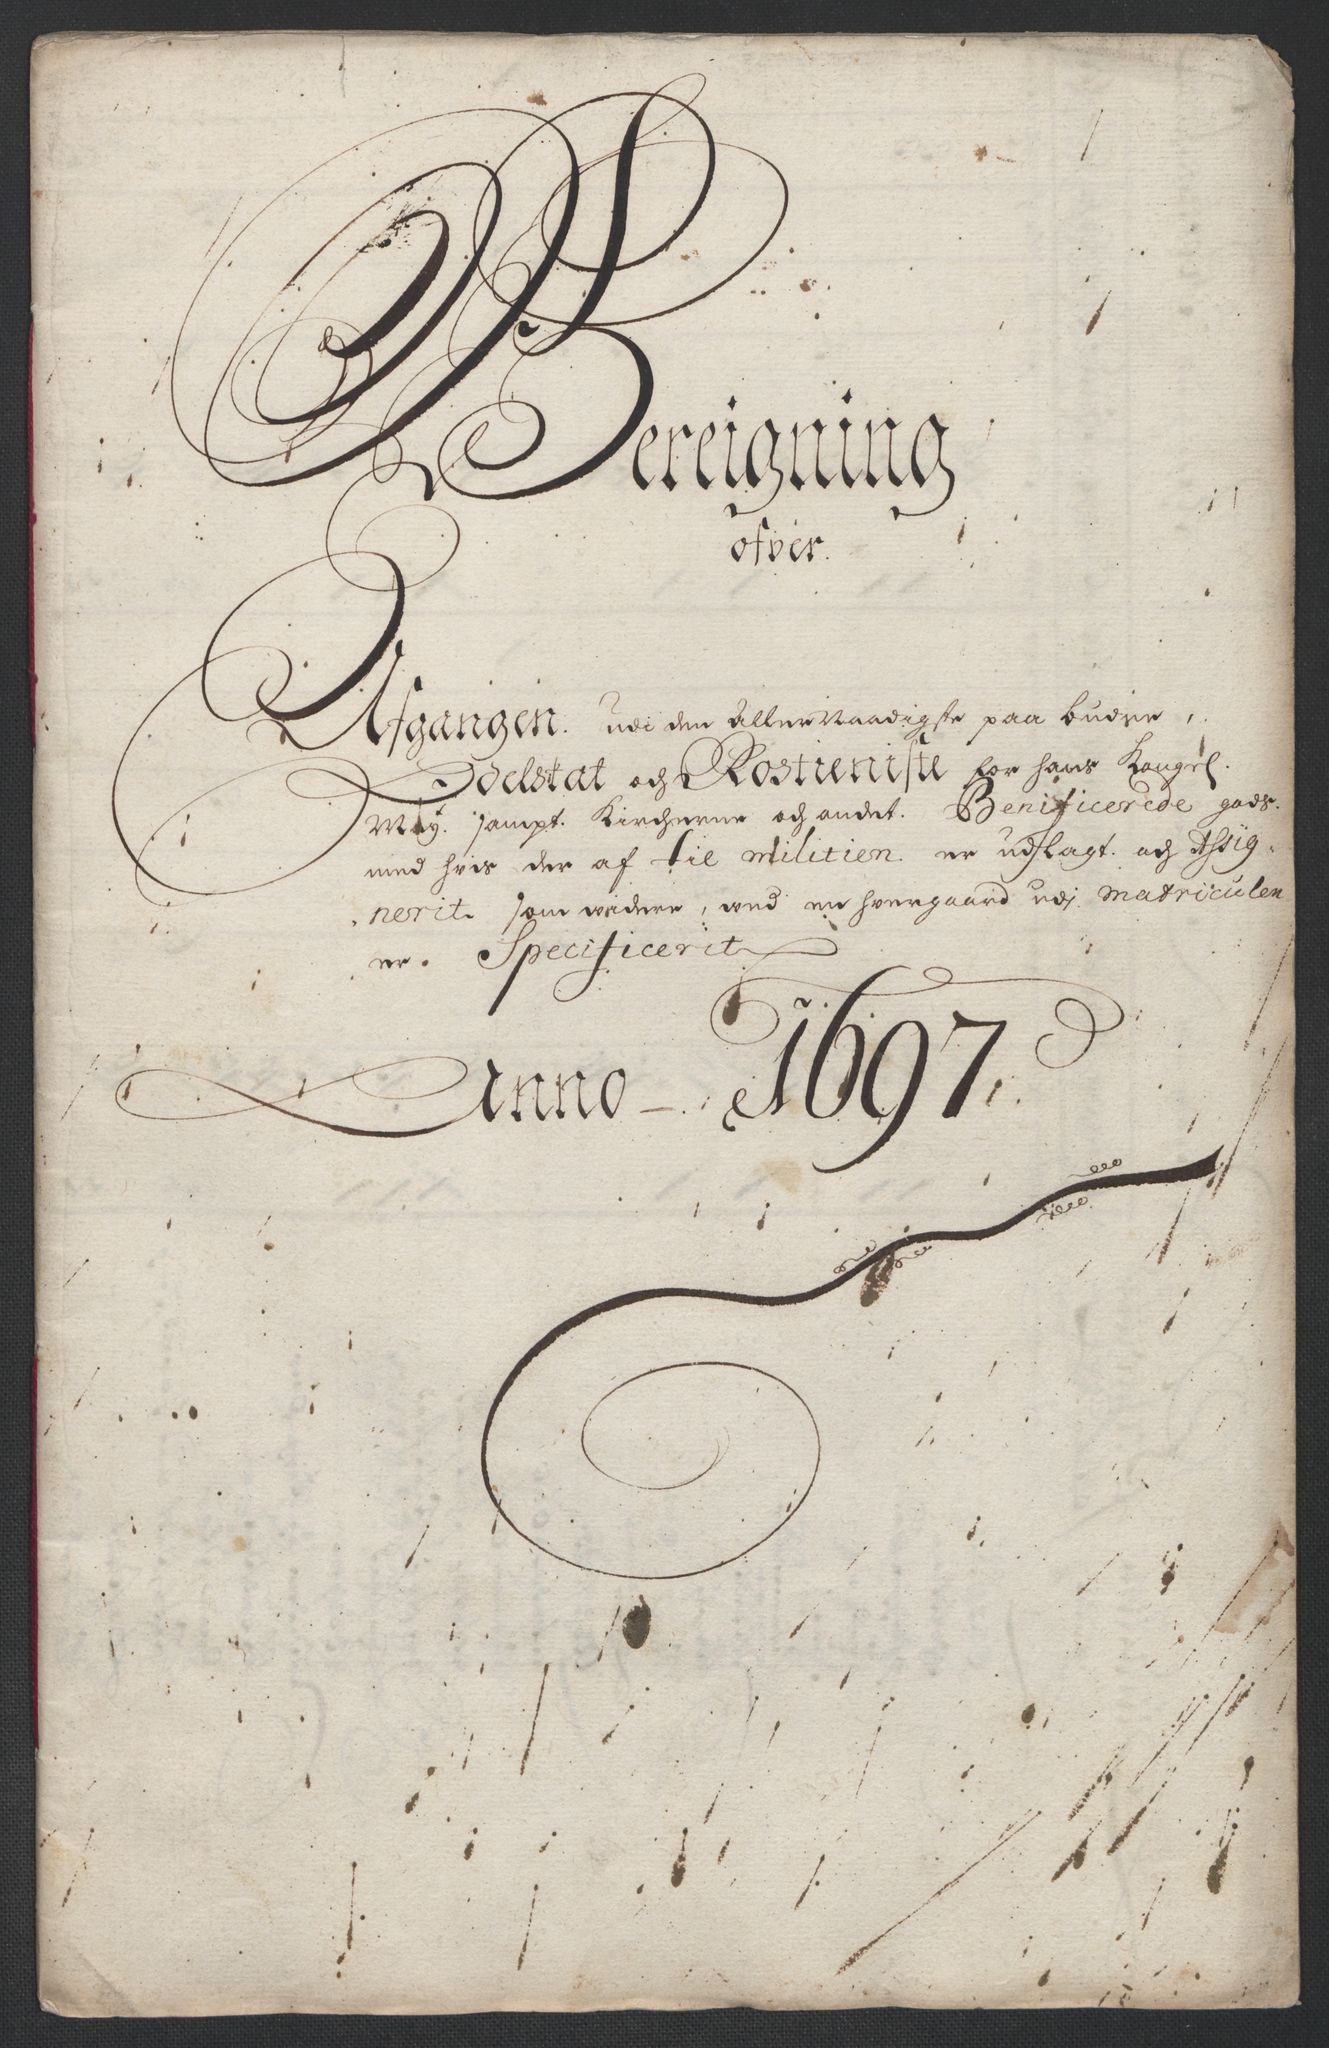 Bereigning
ofver.
Afgangen. udi den Allernaadigste paa budne,
Odelskat och Rostieniste for hans Kongel.
May. sampt. Kircherne och andet. Benificerede gods.
med hvis der af til militien. er udlagt. och Assig-
nerit. som videre, ved en hvergaard udj matriculen
er. Specificerit
Anno - 1697.